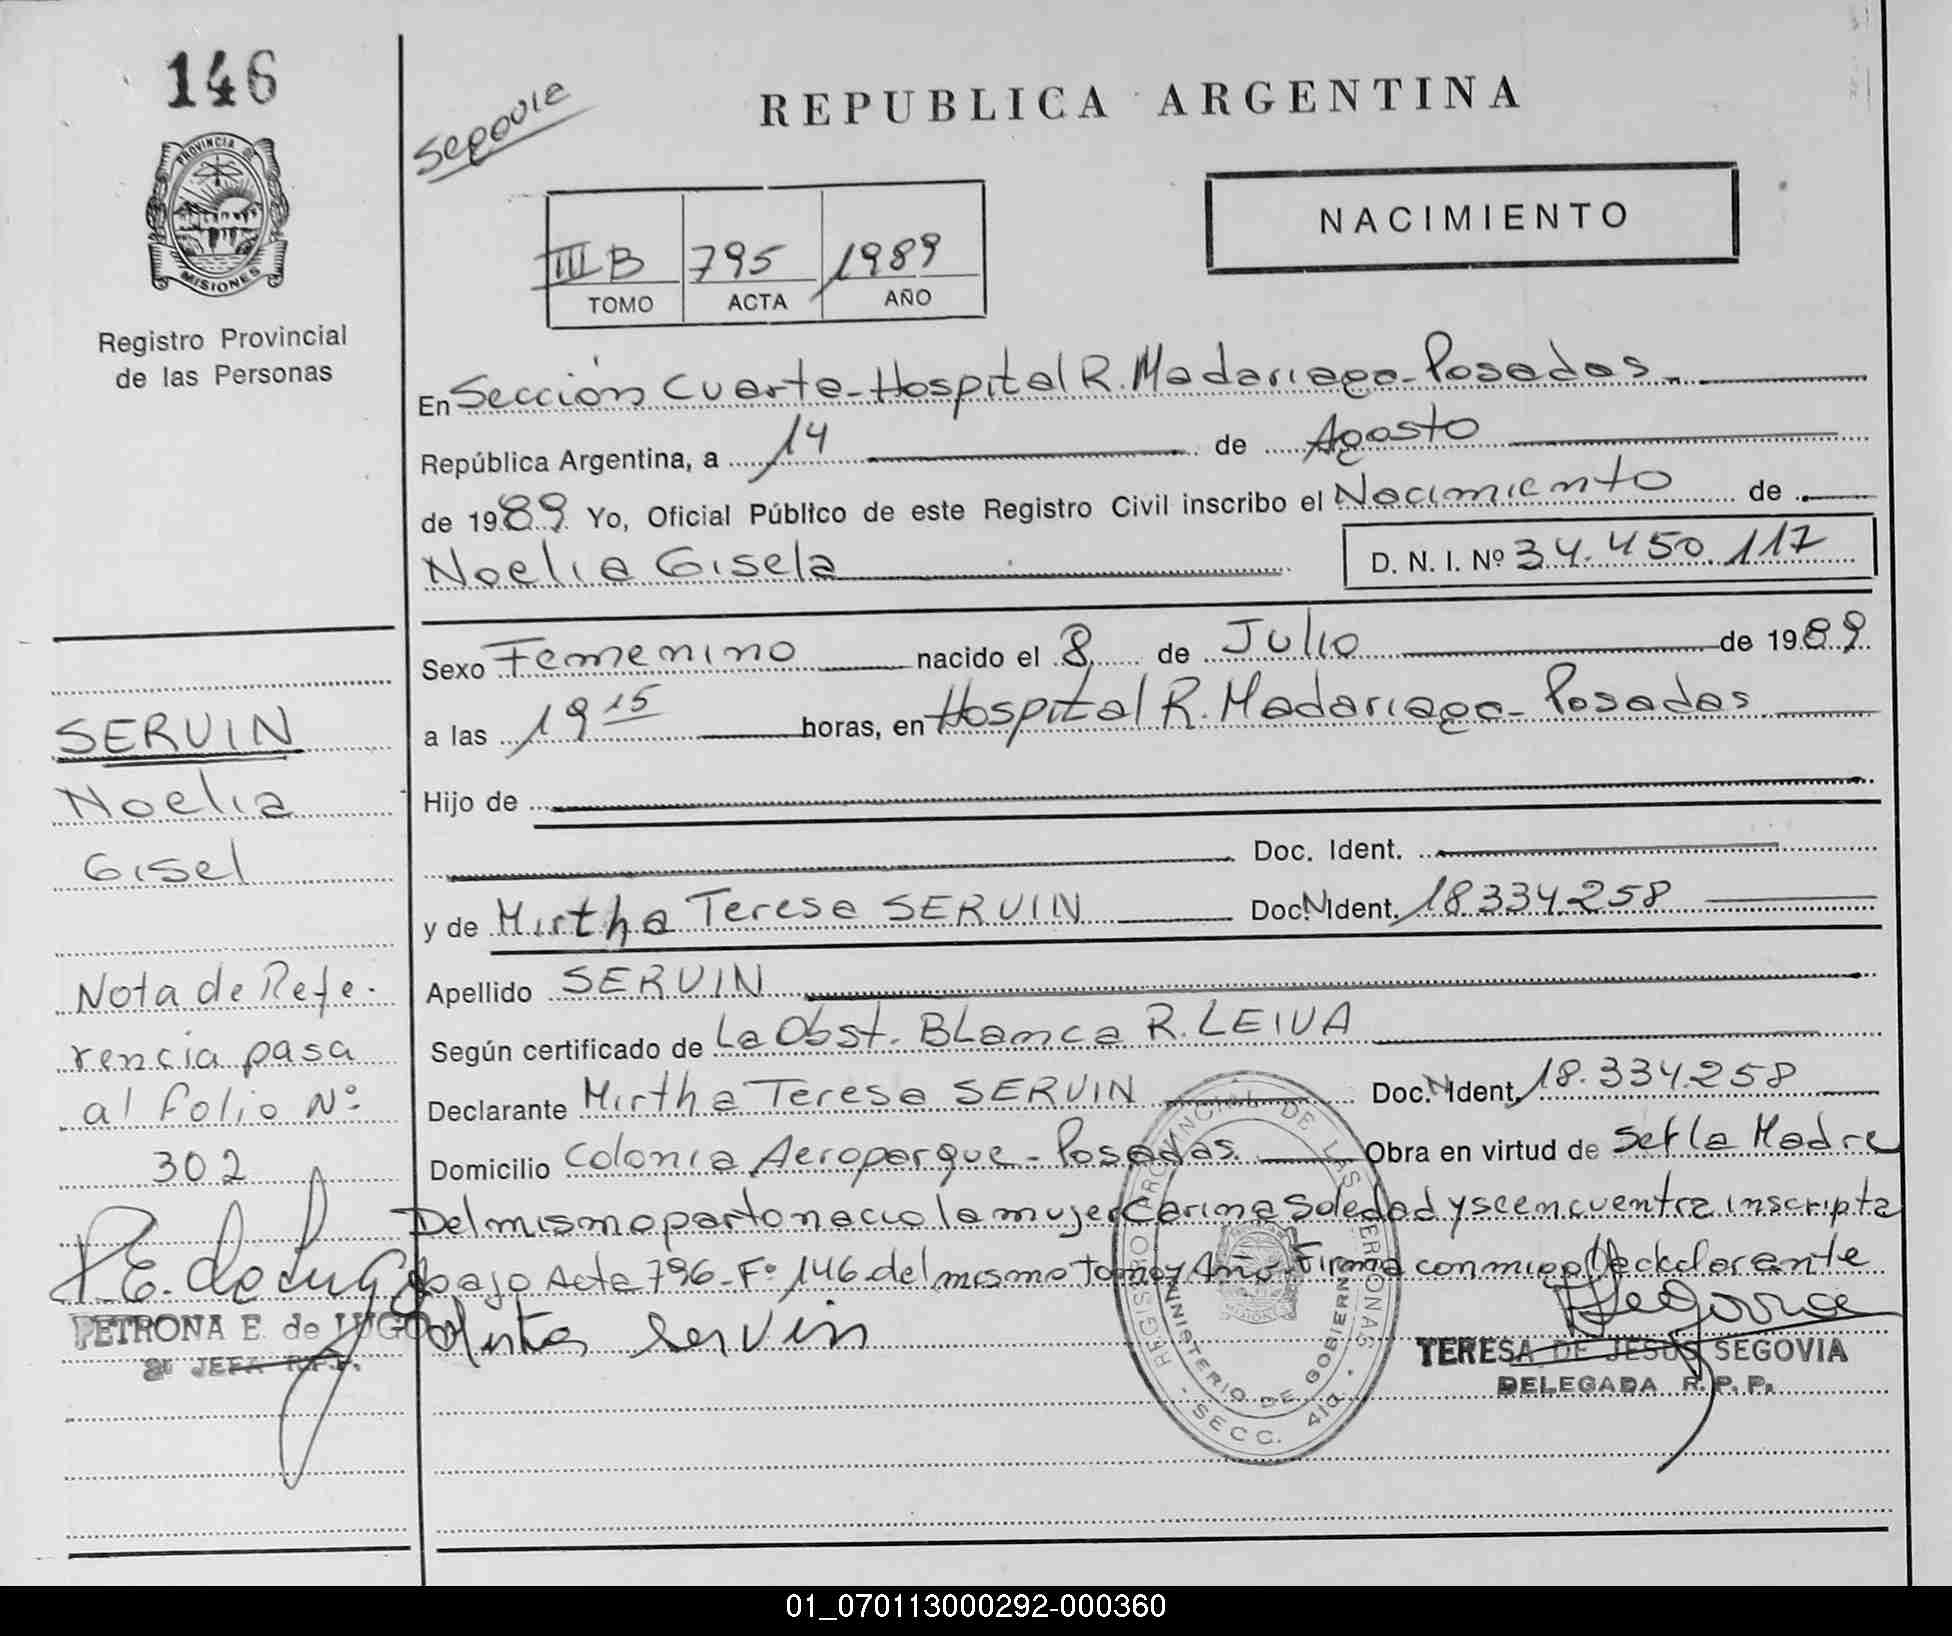 146
PROVINCIA DE
MISIONES
Registro Provincial
de las Personas
SERVIN
Noelia
Gisel
Nota de Refe-
rencia pasa
al folio Nº
302
P.E. de Lugo
PETRONA E. de LUGO
2º JEFA R.P.P.
Segovia
REPUBLICA ARGENTINA
III B 795 1989
TOMO ACTA AÑO
NACIMIENTO
En Sección Cuarta - Hospital R. Madariaga - Posadas
República Argentina, a 14 de Agosto
de 1989 Yo, Oficial Público de este Registro Civil inscribo el Nacimiento de
Noelia Gisela D. N. I. Nº 34.450.117
Sexo Femenino nacido el 8 de Julio de 1989
a las 19 15 horas, en Hospital R. Madariaga - Posadas
Hijo de
Doc. Ident.
y de Mirtha Teresa SERVIN Doc. N Ident. 18.334.258
Apellido SERVIN
Según certificado de La Obst. Blanca R. LEIVA
Declarante Mirtha Teresa SERVIN Doc. N Ident. 18.334.258
Domicilio Colonia Aeroparque - Posadas Obra en virtud de Ser la Madre
Del mismo parto nacio la mujer Carina Soledad y se encuentra inscripta
bajo Acta 796 - Fº 146 del mismo Tomo y Año - Firma conmigo Declarante
Mirta Servin
Segovia
TERESA DE JESUS SEGOVIA
DELEGADA R. P. P.
REGISTRO PROVINCIAL DE LAS PERSONAS
MINISTERIO DE GOBIERNO
SECC. 4ta.
01_070113000292-000360